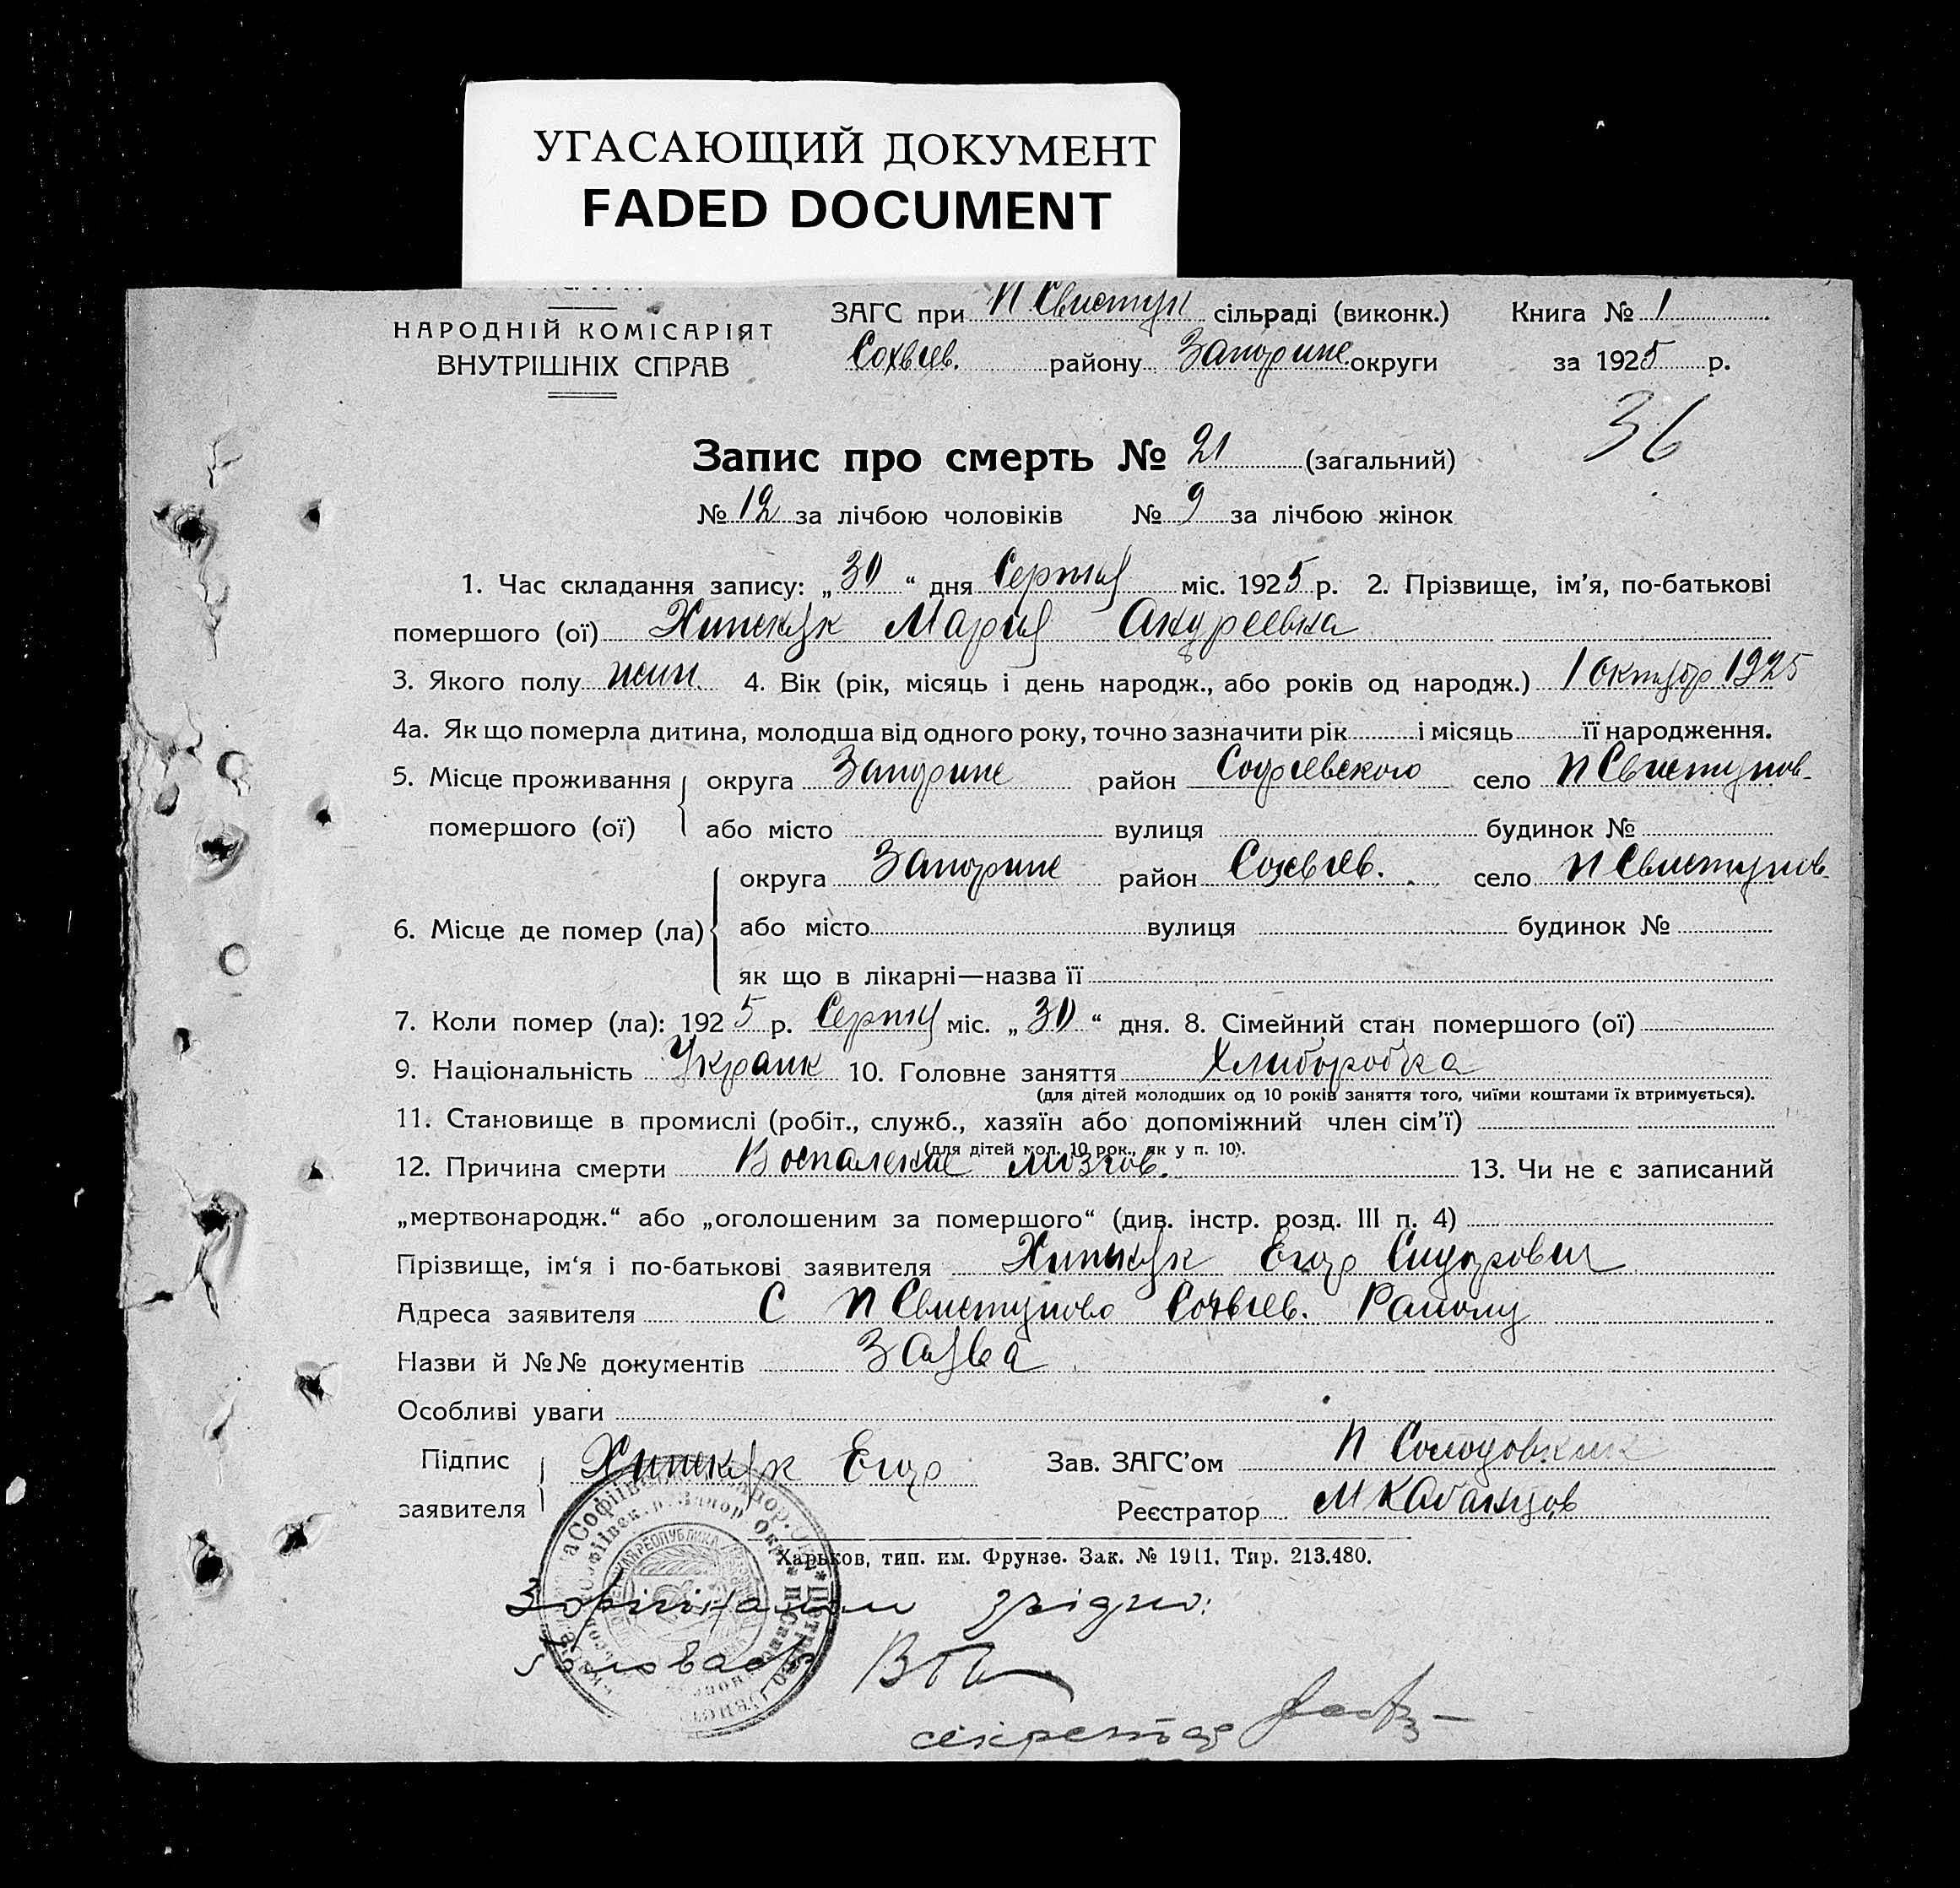 УГАСАЮЩИЙ ДОКУМЕНТ
FADED DOCUMENT
НАРОДНІЙ КОМІСАРІЯТ
ВНУТРІШНІХ СПРАВ
ЗАГС при П Свистун сільраді (виконк.) Книга № 1
Сохвиев. району Запориже округи за 1925 р.
36
Запис про смерть № 21 (загальний)
№ 12 за лічбою чоловіків № 9 за лічбою жінок
1. Час складання запису: „30“ дня Серпня міс. 1925 р. 2. Прізвище, ім’я, по-батькові
помершого (ої) Мария Андреевна
3. Якого полу жин. 4. Вік (рік, місяць і день народж., або років од народж.) 1 Октябр 1925
4а. Як що померла дитина, молодша від одного року, точно зазначити рік і місяць її народження.
5. Місце проживання округа Запориже район Софиевского село П Свистунов-
помершого (ої) або місто вулиця будинок №
округа Запориже район Сохвиев. село П Свистунов-
6. Місце де помер (ла) або місто вулиця будинок №
як що в лікарні—назва її
7. Коли помер (ла): 1925 р. Серпня міс. „30“ дня. 8. Сімейний стан помершого (ої)
9. Національність Украин 10. Головне заняття Хлиборобка
(для дітей молодших од 10 років заняття того, чиїми коштами їх втримується).
11. Становище в промислі (робіт., служб., хазяїн або допоміжний член сім’ї)
(для дітей мол. 10 рок., як у п. 10).
12. Причина смерти Воспаление мозгов. 13. Чи не є записаний
„мертвонародж.“ або „оголошеним за помершого“ (див. інстр. розд. III п. 4)
Прізвище, ім‘я і по-батькові заявителя Егор Сидорович
Адреса заявителя С П Свистуново Сохвиев. Району
Назви й №№ документів Заява
Особливі уваги
Підпис Егор Зав. ЗАГС’ом П Солодовник
заявителя Реєстратор М Кабанцов
Харьков, тип. им. Фрунзе. Зак. № 1911. Тир. 213.480.
З оригіналом згідно:
Голова
секретар